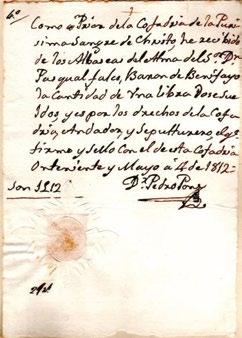 6º
Como a Prior de la Cofadria de la Puri-
sima Sangre de Christo, he recibido
de los Albaseas del Alma del Sor. Dn.
Pasqual fales, Baron de Benifayo
la Cantidad de Vna libra Dose Suel-
dos y es por los drechos de la Cofa-
dria, Andador, y Sepulturero, y lo
firmo y Sello Con el de esta Cofadria
Onteniente y Mayo à 4 de 1812
Dn. Pedro Pons
Son 1 L 12